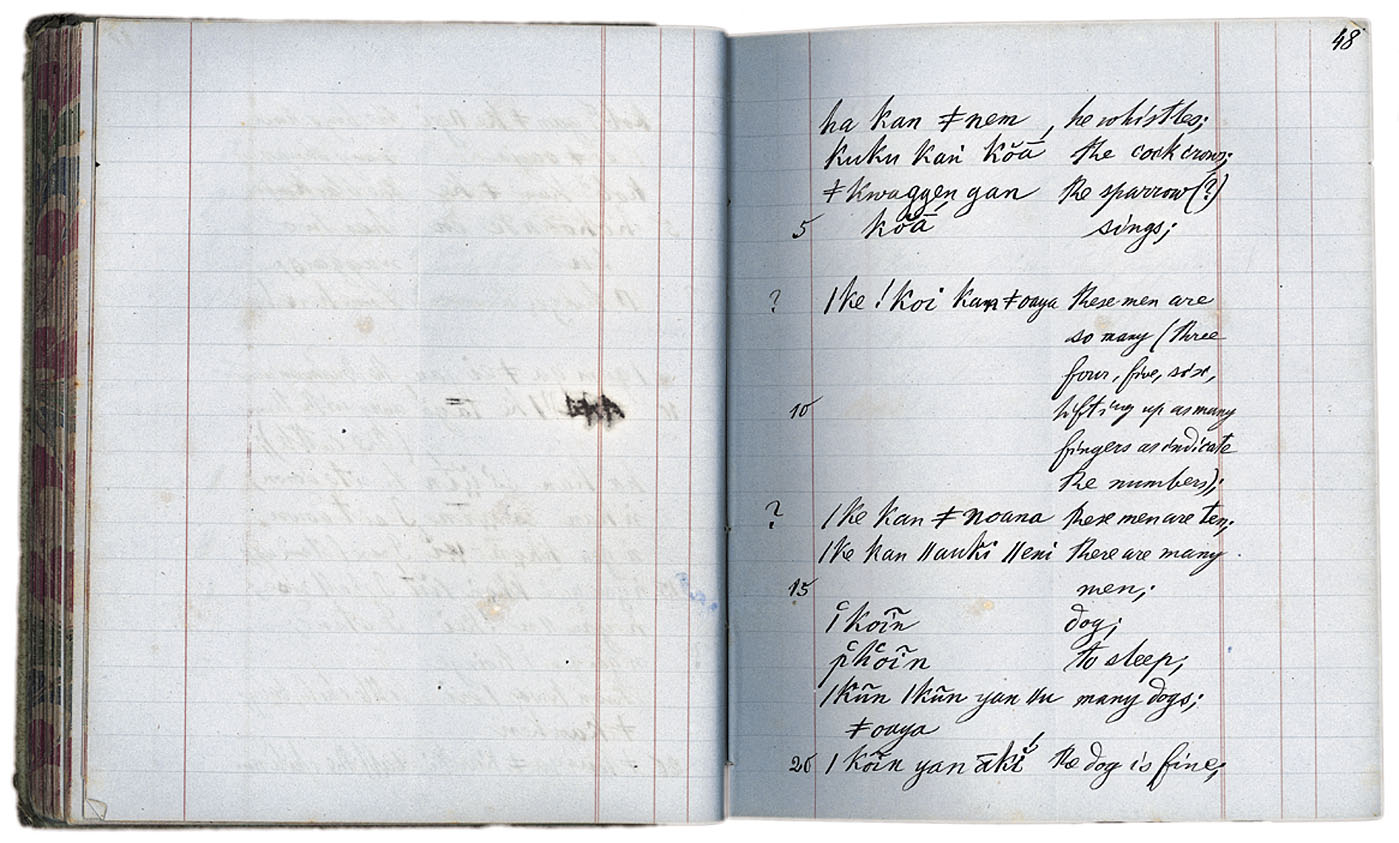 48
ha kan ǂnem, he whistles;
kuku kan kŏā the cock crows;
ǂkwaggen yan the sparrow(?)
5 kŏā sings;
? |ke !koi kan ǂoaya these men are
so many (three
four, five, six,
10 lifting up as many
fingers as indicate
the numbers);
? |ke kan ǂnoana these men are ten;
|ke kan ǁaukĭ ǁeni there are many
15 men;
|koĩn dog;
pkoĩn to sleep;
|kũn |kũn yan ǁu many dogs;
ǂoaya
20 |kŏĩn yan āki the dog is fine;